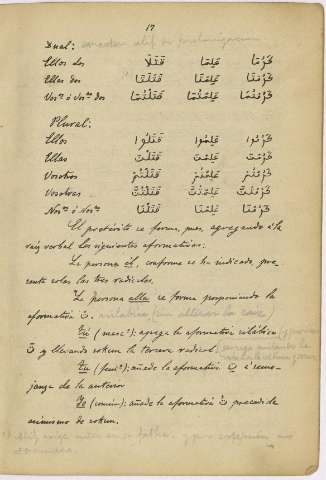 17
Dual:
Ellos dos قَتَلَا عَلِمَا كَرُمَا
Ellas dos قَتَلَتَا عَلِمَتَا كَرُمَتَا
Vos.os ó Vos.as dos قَتَلْتُمَا عَلِمْتُمَا كَرُمْتُمَا
Plural:
Ellos قَتَلُوا عَلِمُوا كَرُمُوا
Ellas قَتَلْنَ عَلِمْنَ كَرُمْنَ
Vosotros قَتَلْتُمْ عَلِمْتُمْ كَرُمْتُمْ
Vosotras قَتَلْتُنَّ عَلِمْتُنَّ كَرُمْتُنَّ
Nos.os ó Nos.as قَتَلْنَا عَلِمْنَا كَرُمْنَا
El pretérito se forma, pues, agregando á la
raiz verbal los siguientes aformativos:
La persona él, conforme se ha indicado, pre-
senta solas las tres radicales.
La persona ella se forma posponiendo la
aformativa تْ.
Tú (masc.º): agrega la aformativa silábica
تَ y llevando sokun la tercera radical.
Tú (fem.º): añade la aformativa تِ á seme-
janza de la anterior
Yo (común): añade la aformativa تُ precedida
asimismo de sokun.